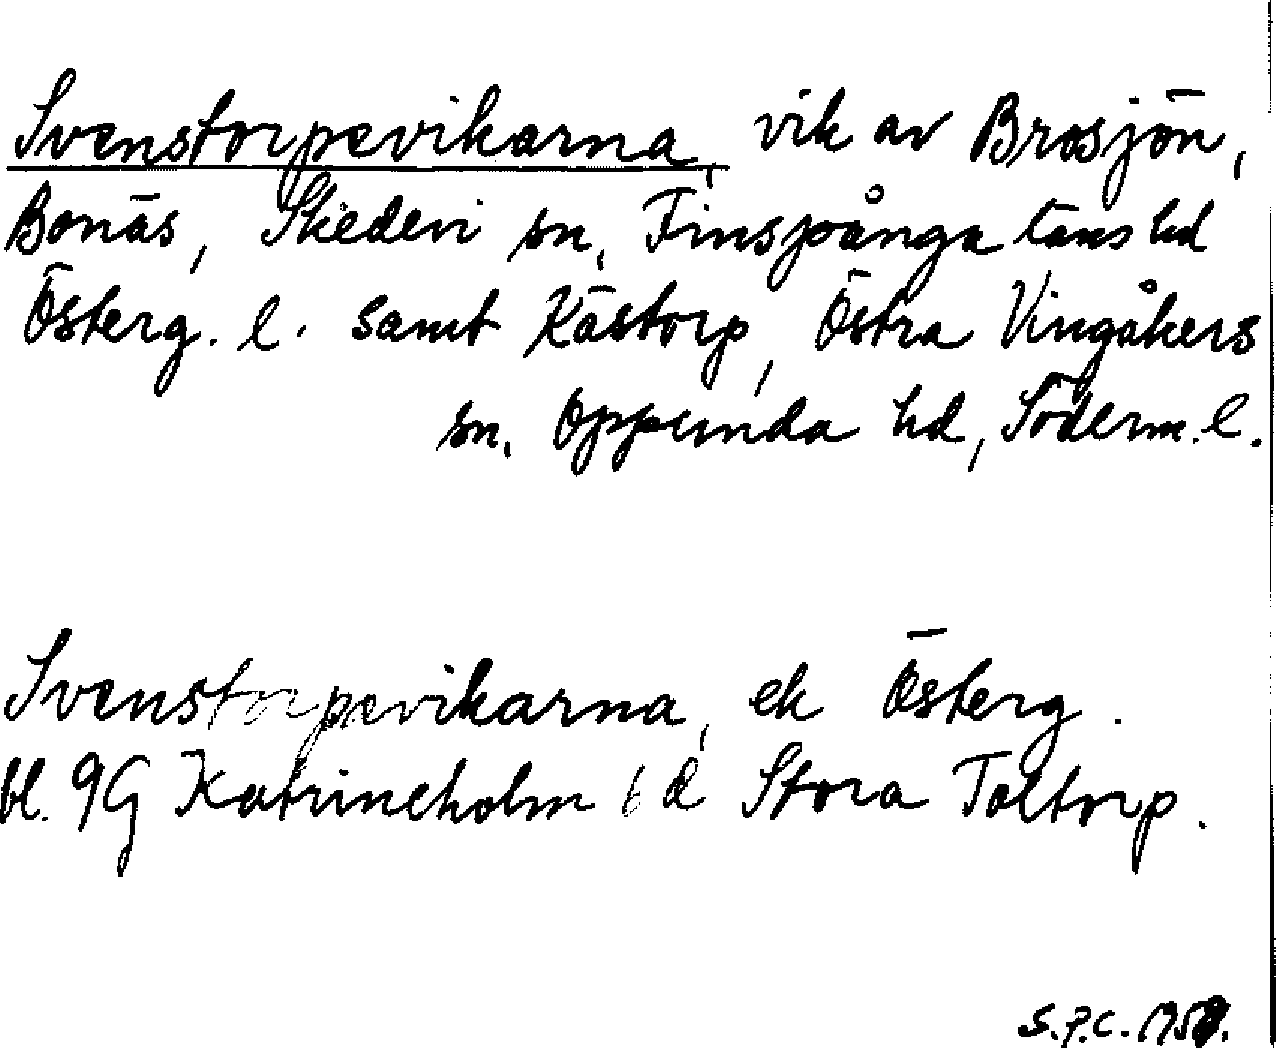 Svenstorpevikarna, vik av Brosjön,
Bonäs, Skedevi sn, Finspånga läns hd
Österg. l. samt Kästorp, Östra Vingåkers
sn. Oppunda hd, Söderm. l.
Svenstorpevikarna, ek Österg.
bl. 9G Katrineholm 6 d Stora Toltorp.
S.P.C.